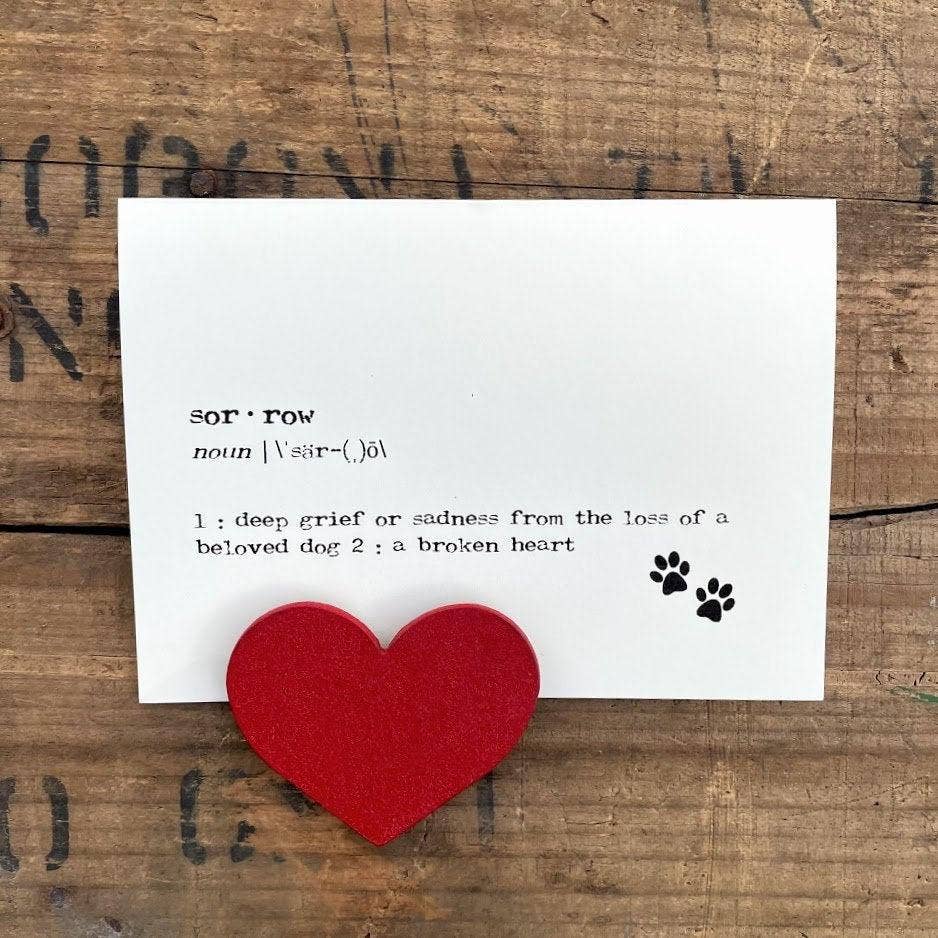 sor·row
noun | \ˈsär-(ˌ)ō\
1 : deep grief or sadness from the loss of a
beloved dog 2 : a broken heart